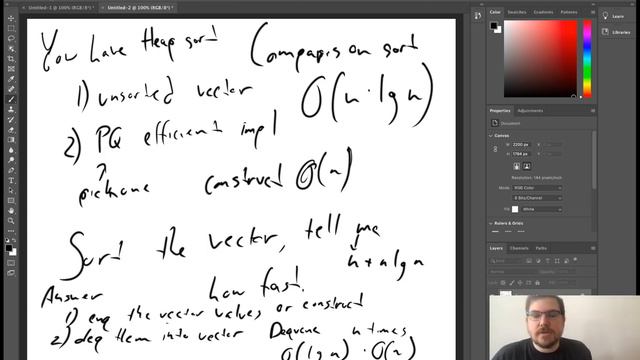 Untitled-1 @ 100% (RGB/8*)
Untitled-2 @ 100% (RGB/8*) *
You have Heap sort
Comparison sort
1) unsorted vector
O(n · lg n)
2) PQ efficient impl
pick one
construct O(n)
Sort the vector, tell me
how fast.
n + n lg n
Answer
1) enq the vector values or construct
2) deq them into vector
Dequeue n times
O(lg n) · O(n)
Color
Swatches
Gradients
Patterns
Learn
Libraries
Properties
Adjustments
Document
Canvas
W
2200 px
H
1784 px
Resolution: 144 pixels/inch
Mode
RGB Color
8 Bits/Channel
Fill
White
Rulers & Grids
Layers
Channels
Paths